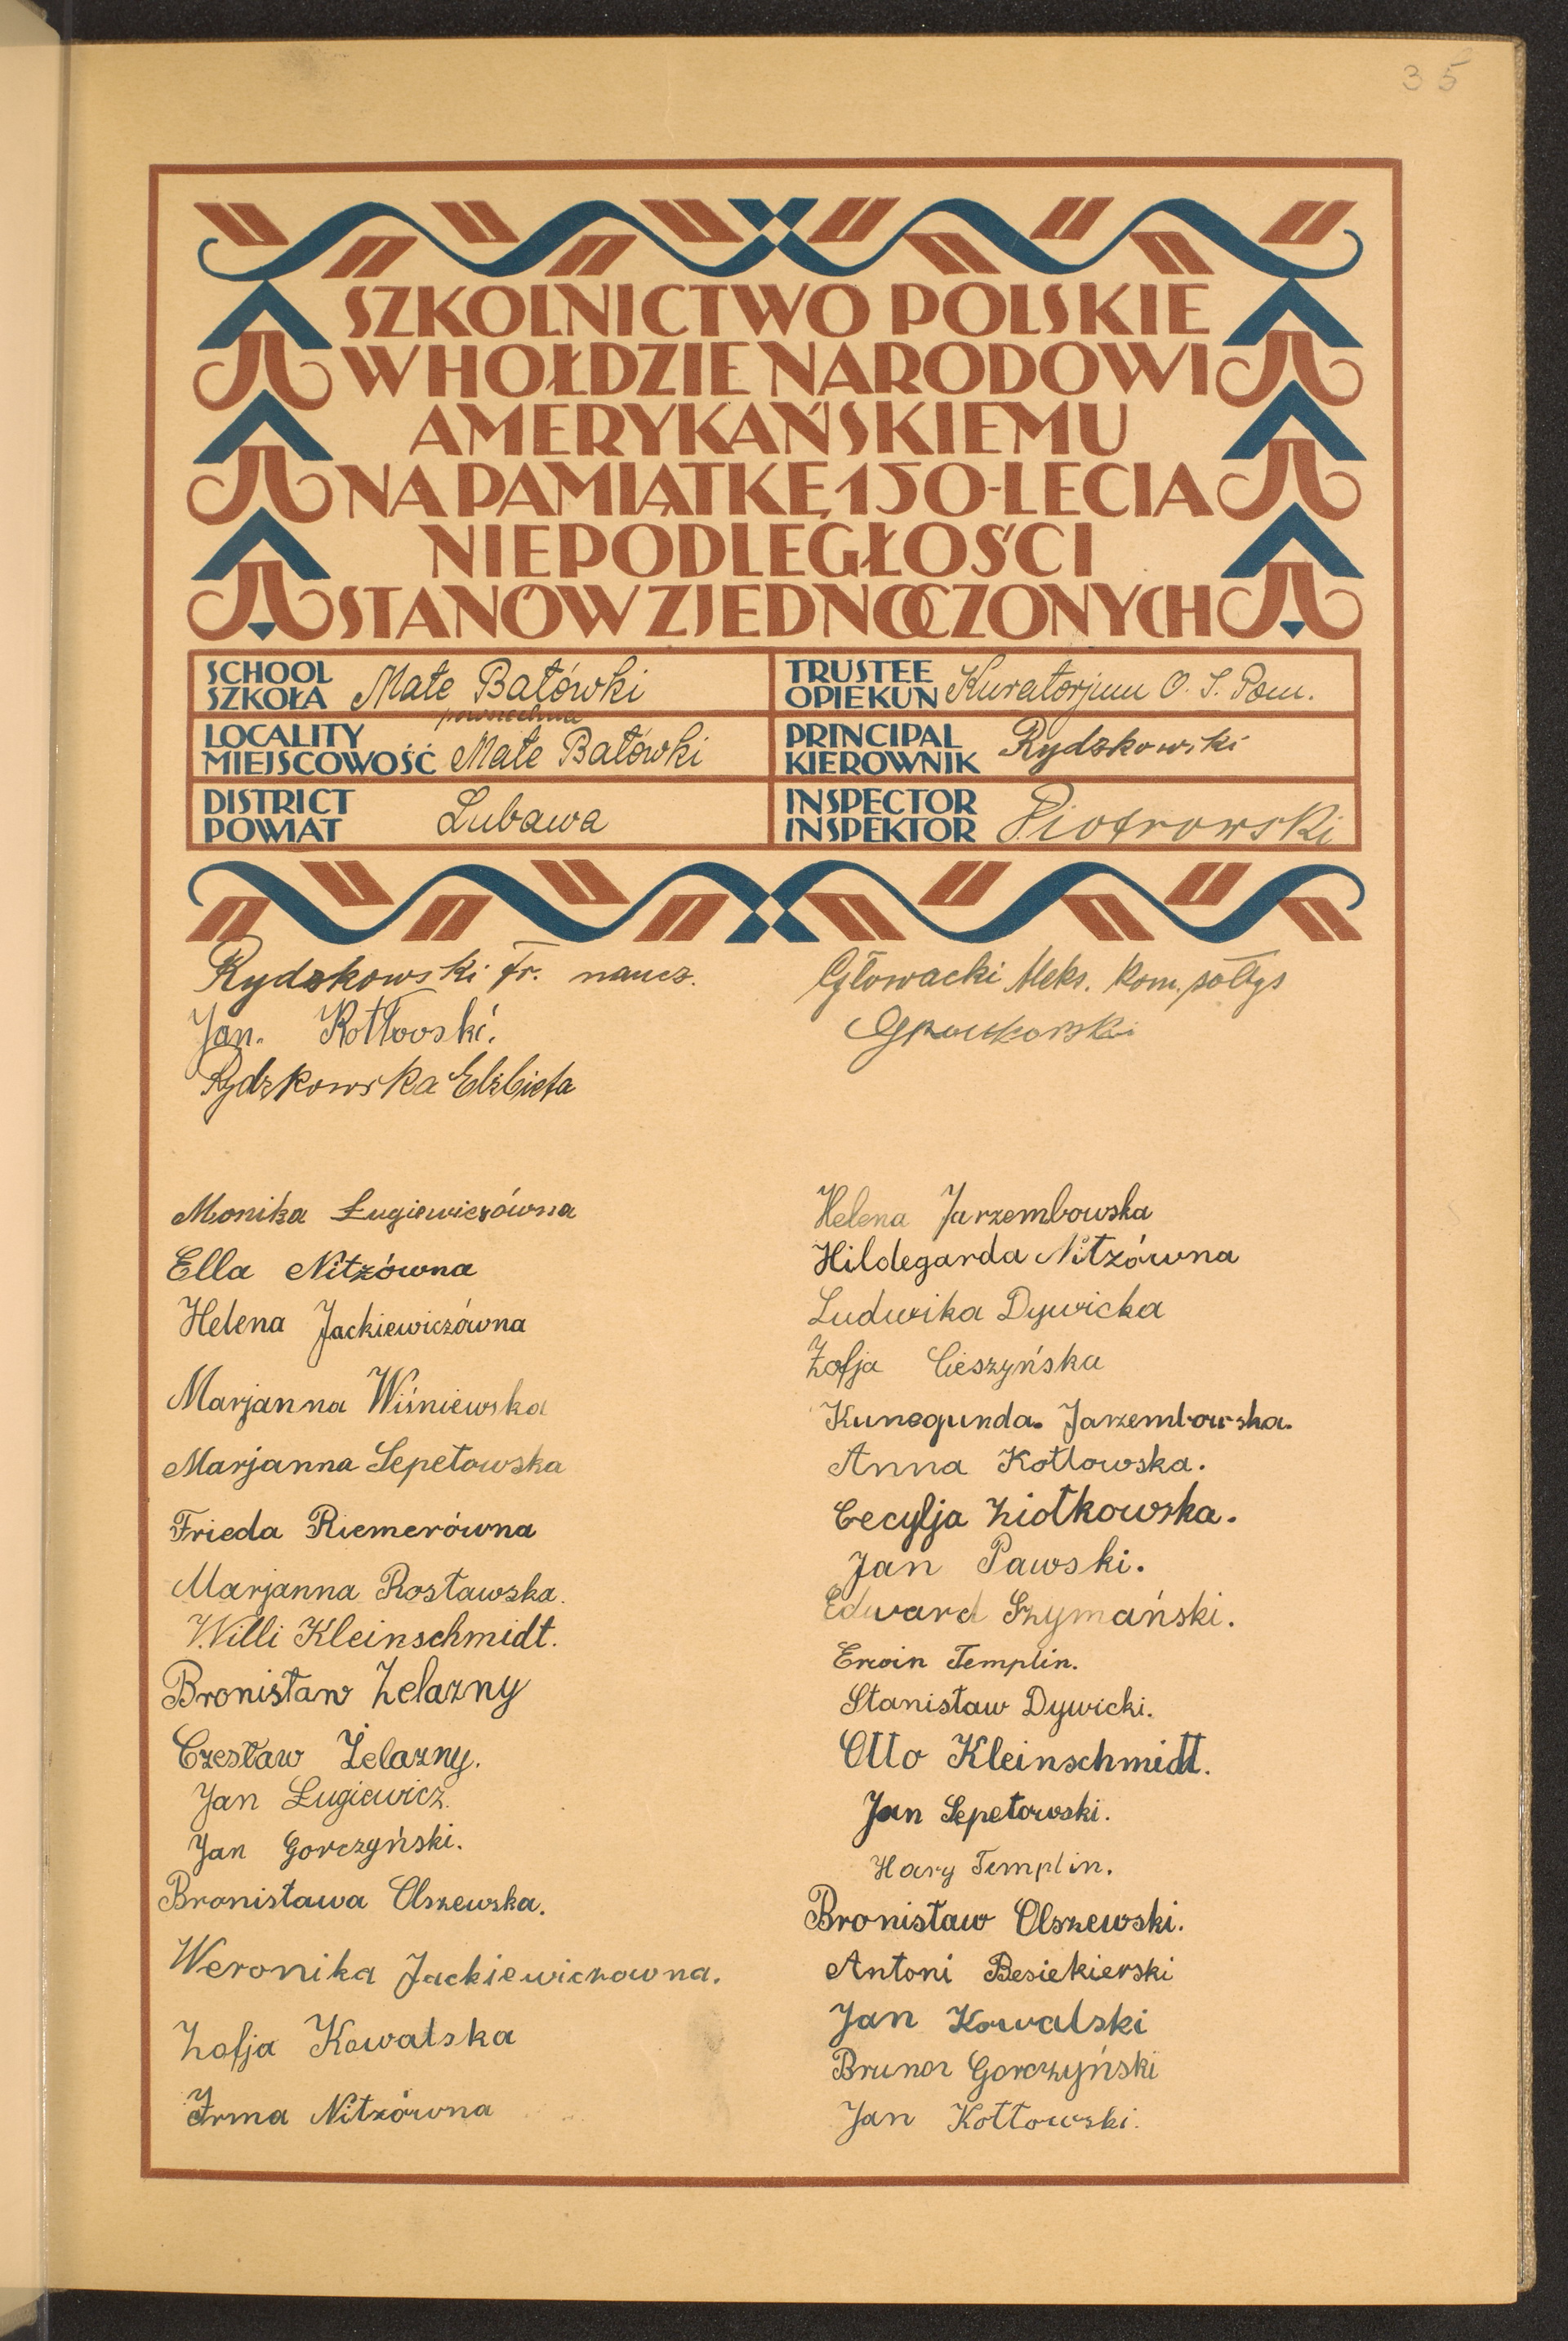 35
SZKOLNICTWO POLSKIE
W HOŁDZIE NARODOWI
AMERYKAŃSKIEMU
NA PAMIĄTKĘ 150-LECIA
NIEPODLEGŁOŚCI
STANÓW ZJEDNOCZONYCH
SCHOOL
SZKOŁA Małe Bałówki
powszechna
TRUSTEE
OPIEKUN Kuratorjum O. S. Pom.
LOCALITY
MIEJSCOWOŚĆ Małe Bałówki
PRINCIPAL
KIEROWNIK Rydzkowski
DISTRICT
POWIAT Lubawa
INSPECTOR
INSPEKTOR Piotrowski
Rydzkowski Fr. naucz.
Jan. Kotłowski.
Rydzkowska Elżbieta
Głowacki Aleks. kom. sołtys
Monika Ługiewiczówna
Ella Nitzówna
Helena Jackiewiczówna
Marjanna Wiśniewska
Marjanna Sepetowska
Frieda Riemerówna
Marjanna Rosławska.
Willi Kleinschmidt.
Bronisław Żelazny
Czesław Żelazny.
Jan Ługiewicz.
Jan Gorczyński.
Bronisława Olszewska.
Weronika Jackiewiczowna.
Zofja Kowalska
Irma Nitzówna
Helena Jarzembowska
Hildegarda Nitzówna
Ludwika Dywicka
Zofja Cieszyńska
Kunegunda. Jarzembowska.
Anna Kotłowska.
Cecylja Ziółkowska.
Jan Pawski.
Edward Szymański.
Erwin Templin.
Stanisław Dywicki.
Otto Kleinschmidt.
Jan Sepetowski.
Hary Templin.
Bronisław Olszewski.
Antoni Besiekierski
Jan Kowalski
Brunon Gorczyński
Jan Kotłowski.